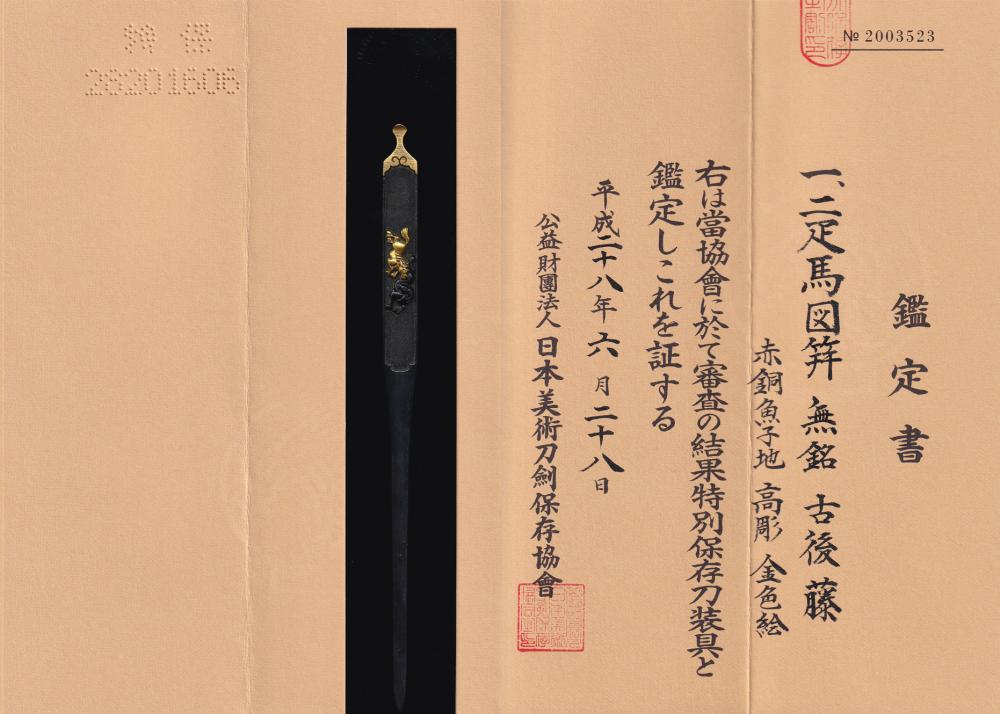 № 2003523
鑑定書
一、二疋馬図笄 無銘 古後藤
赤銅魚子地 高彫 金色絵
右は當協會に於て審査の結果特別保存刀装具と
鑑定しこれを証する
平成二十八年六月二十八日
公益財團法人 日本美術刀劍保存協會
28201606